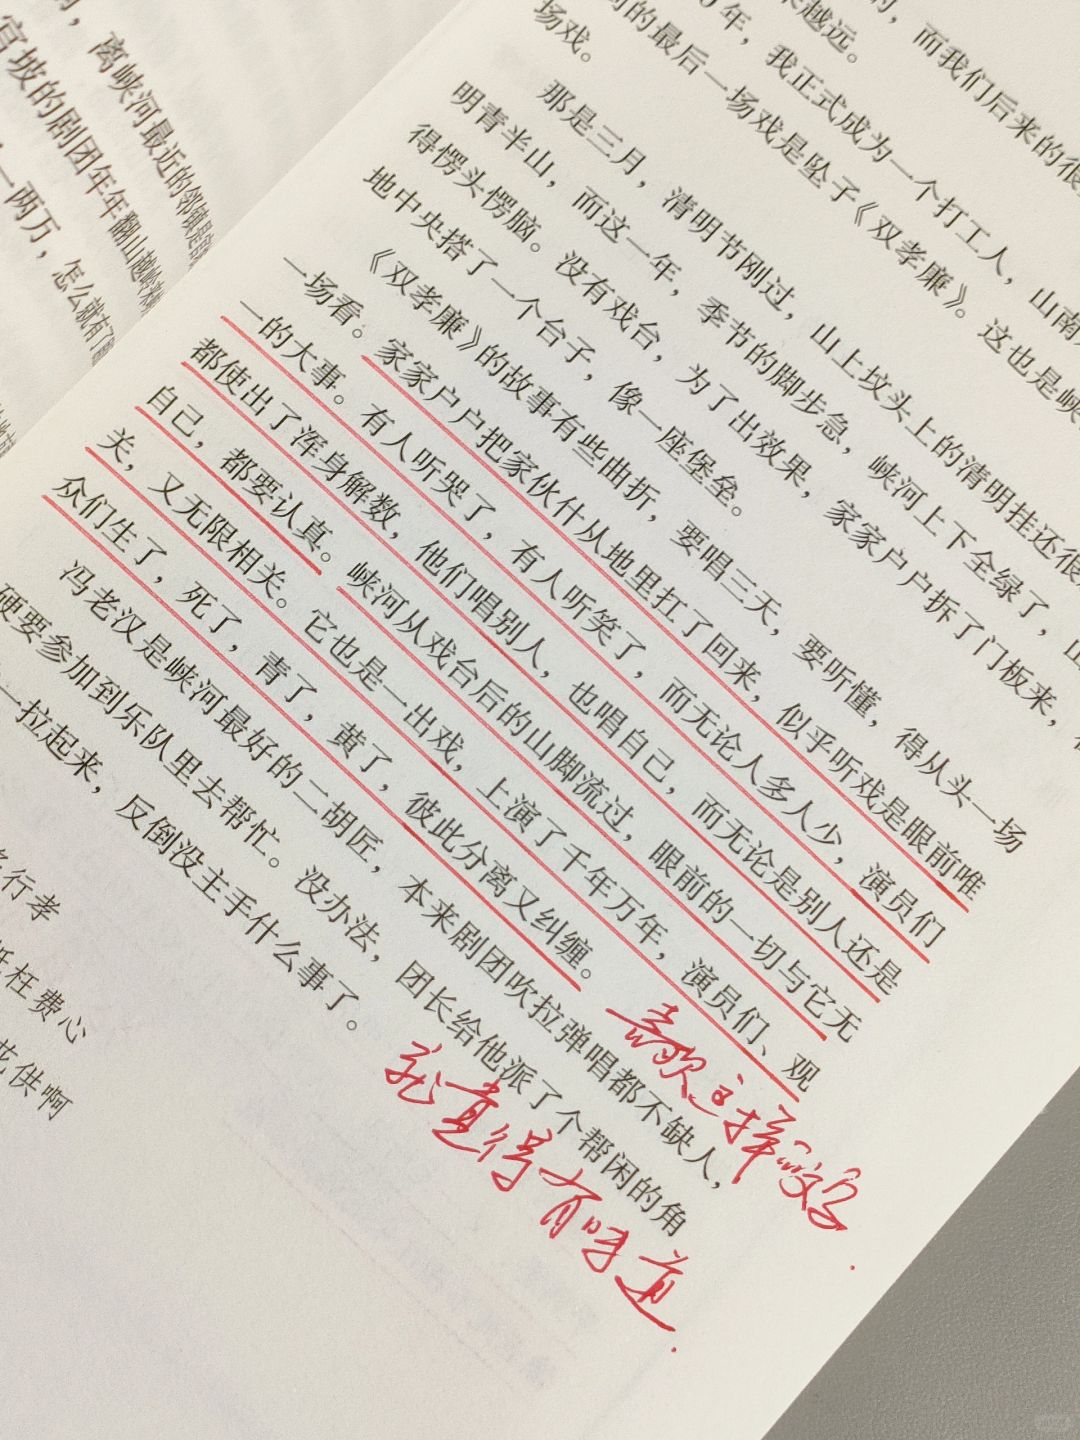 ，离峡河最近的邻镇是官
官坡的剧团年年翻山越岭来
一两万，怎么就有了
，而我们后来的很
越远。
年，我正式成为一个打工人，山南
的最后一场戏是坠子《双孝廉》。这也是峡
场戏。
那是三月，清明节刚过，山上坟头上的清明挂还很
明青半山，而这一年，季节的脚步急，峡河上下全绿了，山
得愣头愣脑。没有戏台，为了出效果，家家户户拆了门板来，
地中央搭了一个台子，像一座堡垒。
《双孝廉》的故事有些曲折，要唱三天，要听懂，得从头一场
一场看。家家户户把家伙什从地里扛了回来，似乎听戏是眼前唯
一的大事。有人听哭了，有人听笑了，而无论人多人少，演员们
都使出了浑身解数，他们唱别人，也唱自己，而无论是别人还是
自己，都要认真。峡河从戏台后的山脚流过，眼前的一切与它无
关，又无限相关。它也是一出戏，上演了千年万年，演员们、观
众们生了，死了，青了，黄了，彼此分离又纠缠。
冯老汉是峡河最好的二胡匠，本来剧团吹拉弹唱都不缺人，
硬要参加到乐队里去帮忙。没办法，团长给他派了个帮闲的角
一拉起来，反倒没主手什么事了。
行孝
枉费心
花供啊
喜欢这样的文字.
得有味道.